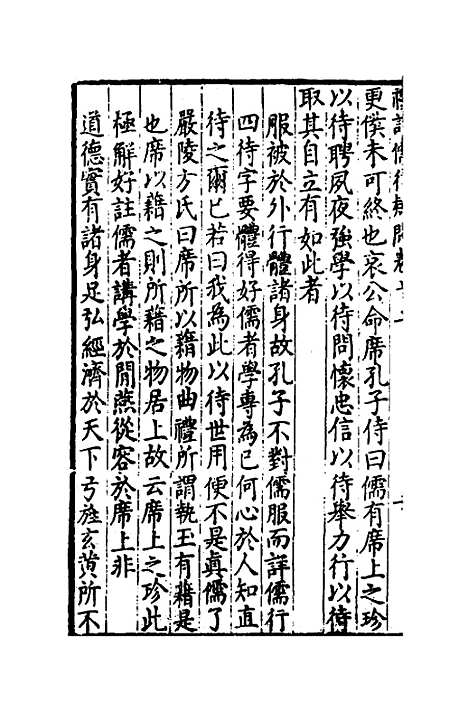 更僕未可終也哀公命席孔子侍曰儒有席上之珍
以待聘夙夜強學以待問懷忠信以待舉力行以待
取其自立有如此者
服被於外行體諸身故孔子不對儒服而評儒行
四待字要體得好儒者學專為己何心於人知直
待之爾已若曰我為此以待世用便不是眞儒了
嚴陵方氏曰席所以藉物曲禮所謂執玉有藉是
也席以藉之則所藉之物居上故云席上之珍此
極解好註儒者講學於閒燕從容於席上非
道德實有諸身足弘經濟於天下弓旌玄黃所不